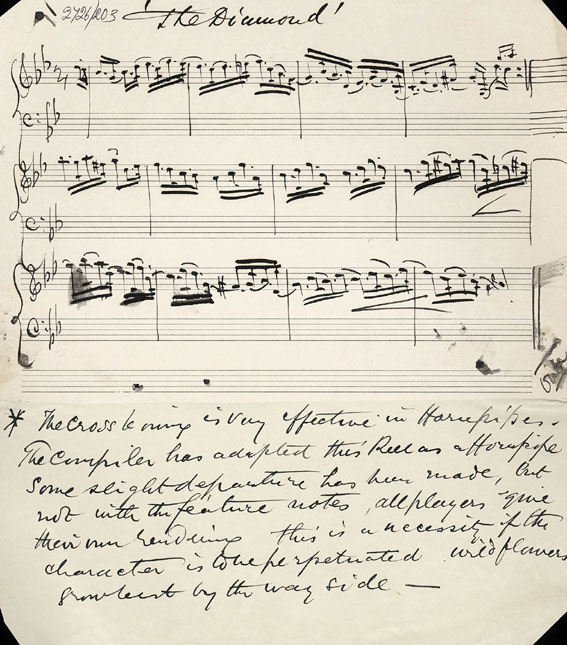 2726/203 'The Diamond'
* The cross bowing is very effective in Hornpipes.
The compiler has adapted this Reel as a Hornpipe
Some slight departure has been made, but
not with the feature notes, all players give
their own rendering this is a necessity if the
character is to be perpetuated wildflowers
grow best by the way side —